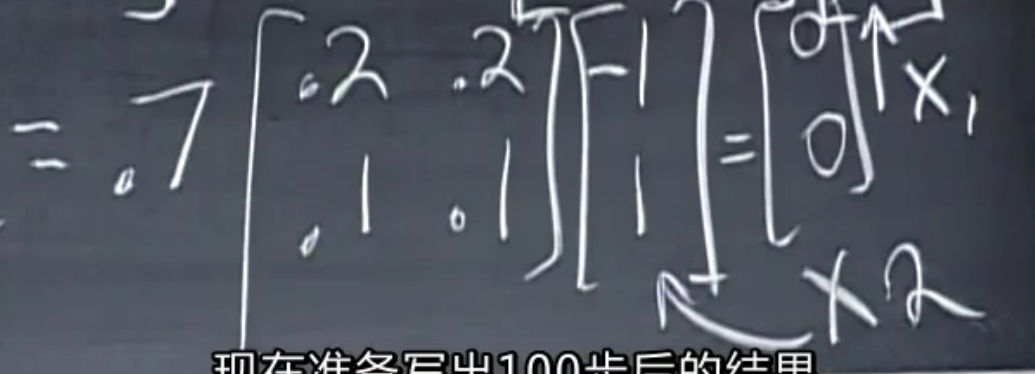 = .7 [ .2 .2 ] [ -1 ] = [ 0 ] ↑ x₁
[ .1 .1 ] [ 1 ] [ 0 ]
x 2
现在准备写出100步后的结果